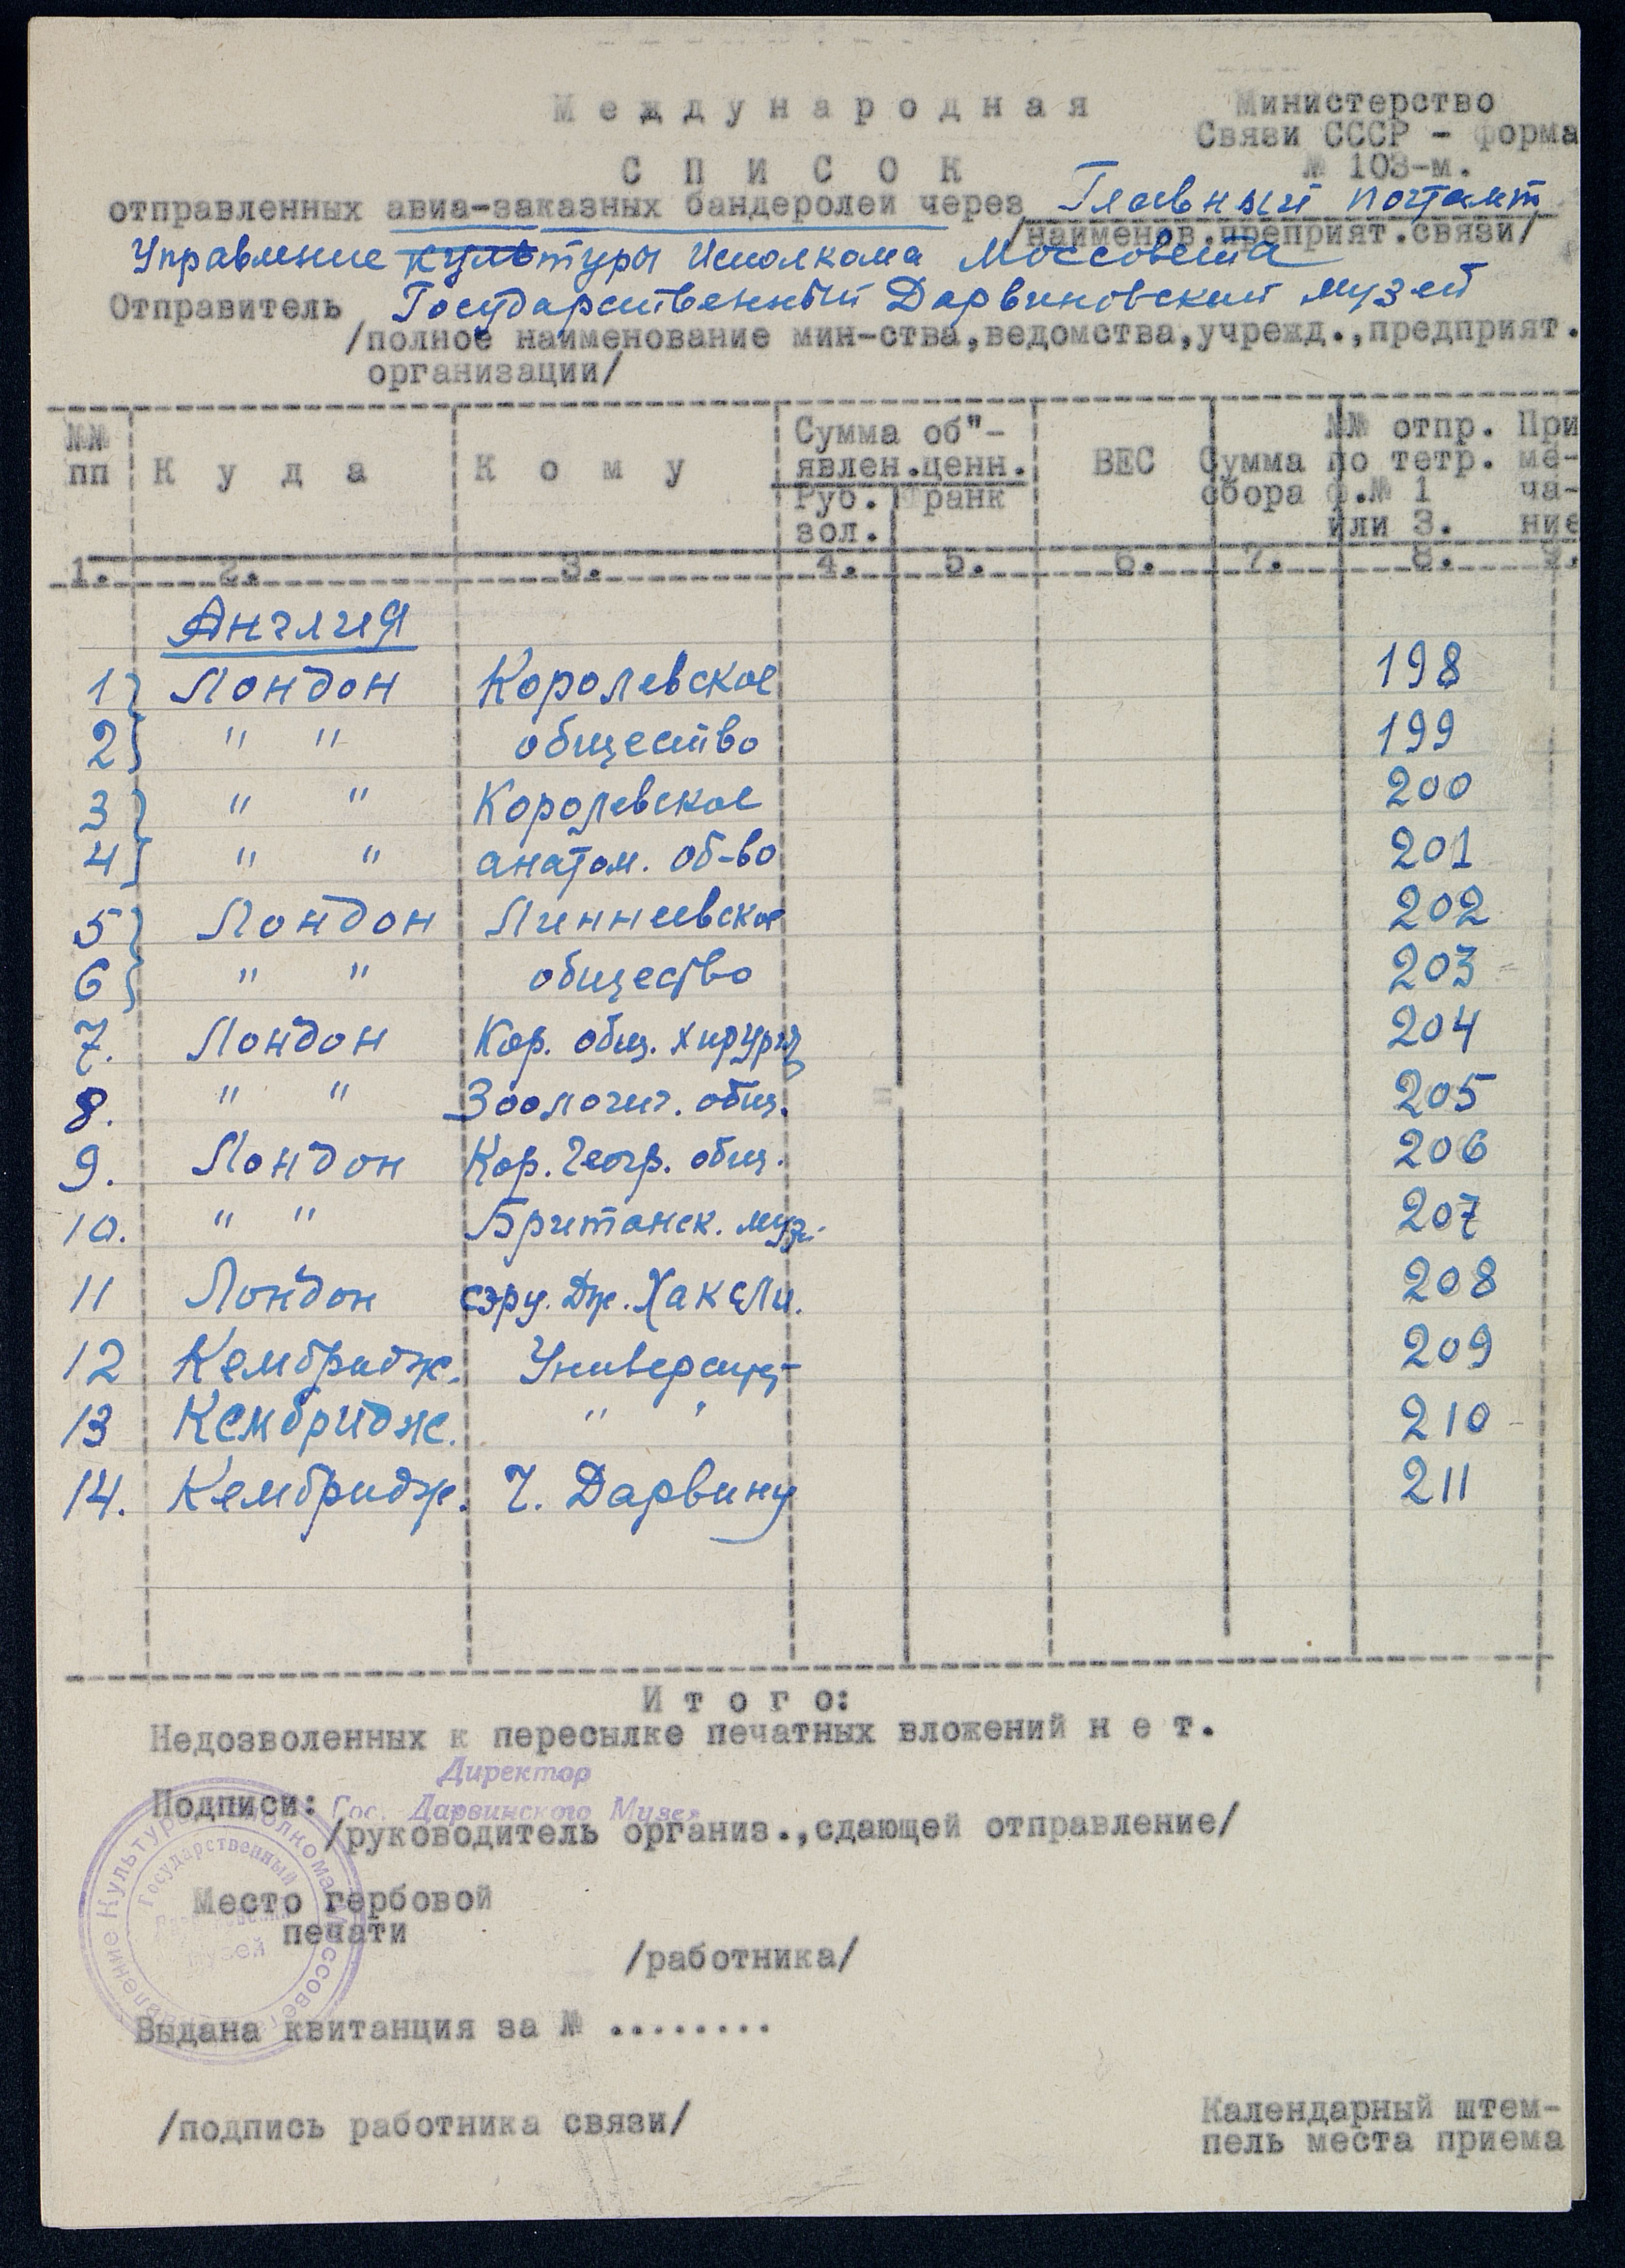 Международная
Министерство
Связи СССР - форма
№ 103-м.
СПИСОК
отправленных авиа-заказных бандеролей через Главный почтамт
/наименов.преприят.связи/
Управление культуры Исполкома Моссовета
Отправитель Государственный Дарвиновский музей
/полное наименование мин-ства,ведомства,учрежд.,предприят.
организации/
№№ пп Куда Кому Сумма об"-явлен.ценн. Руб. зол. Франк ВЕС Сумма сбора №№ отпр. по тетр. ф.№ 1 или 3. При ме- ча- ние
1. 2. 3. 4. 5. 6. 7. 8. 9.
Англия
1} Лондон Королевское 198
2} " " общество 199
3} " " Королевское 200
4} " " анатом. об-во 201
5} Лондон Линнеевское 202
6} " " общество 203
7. Лондон Кор. общ. хирург 204
8. " " Зоологич. общ. 205
9. Лондон Кор. Геогр. общ. 206
10. " " Британск. муз. 207
11 Лондон сэру. Дж. Хаксли. 208
12 Кембридж. Университ 209
13 Кембридж. " " 210
14. Кембридж. Ч. Дарвину 211
Итого:
Недозволенных к пересылке печатных вложений н е т.
Директор
Подписи: Гос. Дарвинского Музея
/руководитель организ.,сдающей отправление/
Управление Культуры Исполкома Моссовета
Государственный
музей
Место гербовой
печати
/работника/
Выдана квитанция за № ........
/подпись работника связи/
Календарный штем-
пель места приема